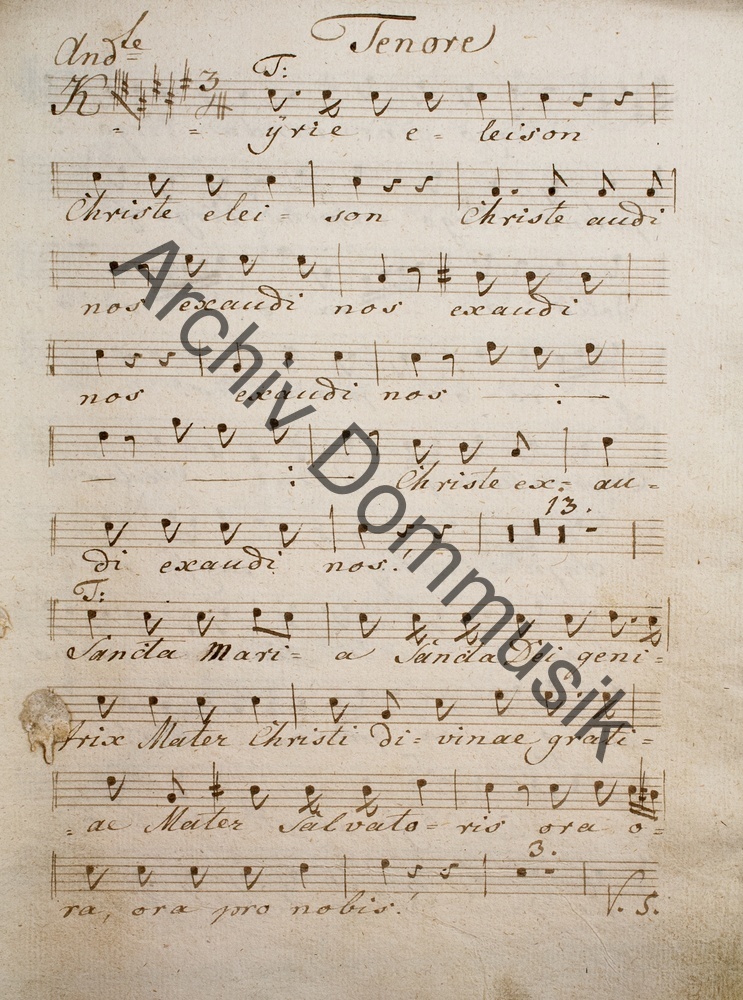 Tenore
Andle
T:
3/4
K - = ÿrie e - leison
Christe elei = son Christe audi
nos exaudi nos exaudi
nos exaudi nos — : —
— : — Christe ex = au =
13.
di exaudi nos!
T:
Sancta Mari - a Sancta Dei geni =
trix Mater Christi di = vinae grati =
= ae Mater Salvato - ris ora o =
3.
ra, ora pro nobis!
V. S.
Archiv Dommusik